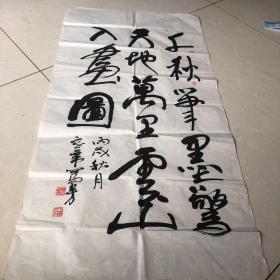 千秋筆墨驚
天地萬里雲山
入畫圖
丙戌秋月